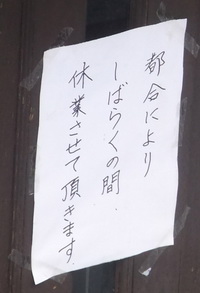 都合により
しばらくの間.
休業させて頂きます